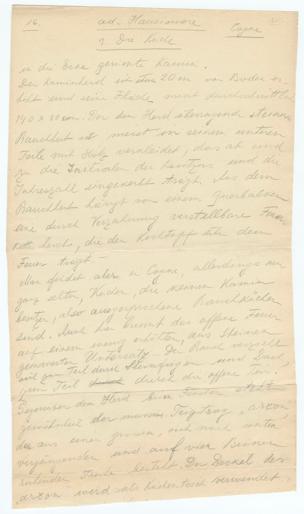 16. ad. Hausinnere Cogne
2. Die Küche
in der Ecke gerückte Kamin.
Der Kaminherd ist ca 20 cm vom Boden er-
hebt und seine Fläche misst durchschnittlich
140 x 80 cm. Der den Herd steinerne
Rauchhut ist meist an seinem unteren
Teile mit Holz verkleidet, das ab und
zu die Initialen des Besitzers und die
Jahreszahl eingekerbt trägt. Aus dem
Rauchhut hängt von einem Querbalken
eine durch Verzahnung verstellbare Feuer-
kette herab, die den Kochtopf über dem
Feuer trägt –
Man findet aber in Cogne, allerdings nur
ganz selten, Küchen, die keinen Kamin
besitzen, also ausgesprochene Rauchküchen
sind. Auch hier brennt das offene Feuer
auf einem wenig erhöhten, aus Steinen
gemauerten Untersatz. Der Rauch verzieht
zum Teil durch und Dach,
zum Teil durch die offene Tür.
Gegenüber dem Herd beim Fenster steht
gewöhnlich der Teigtrog, artson
der aus einer grossen, sich nach unten
verjüngenden und auf vier Beinen
ruhenden Truhe besteht. Der Deckel des
artson wird als Küchentisch verwendet,